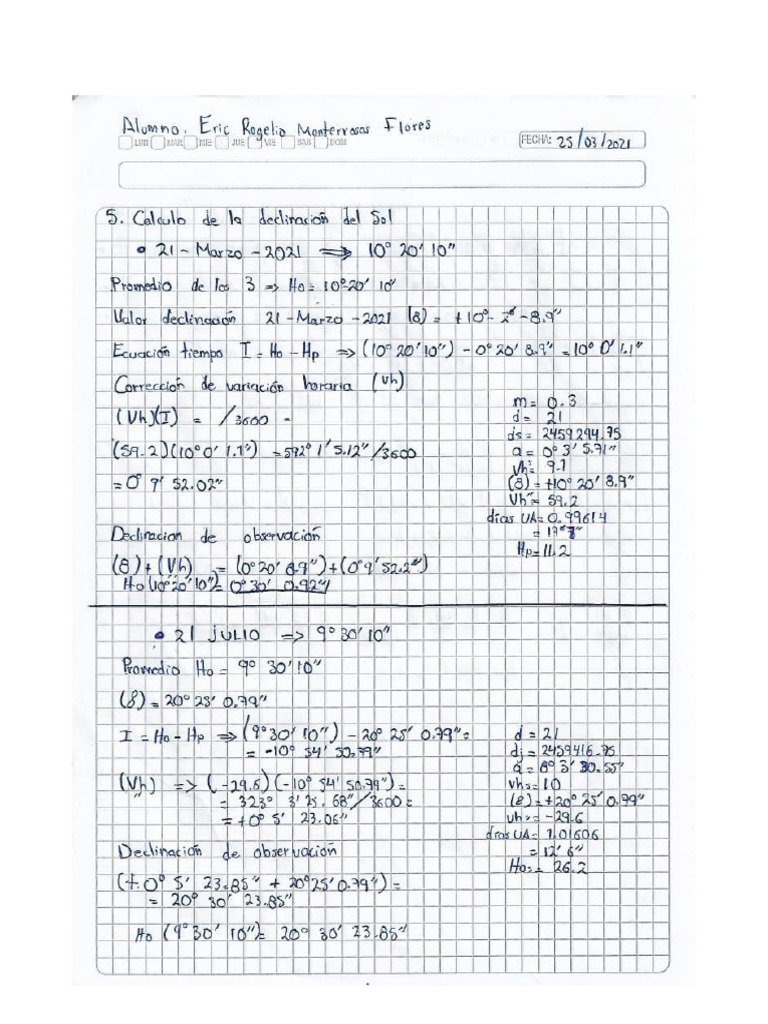 Alumno. Eric Rogelio Monterrosas Flores
LUN MAR MIE JUE VIE SAB DOM
FECHA: 25/03/2021
5. Calculo de la declinación del Sol
• 21 - Marzo - 2021 ⟹ 10° 20' 10"
Promedio de los 3 => Ho = 10° 20' 10"
Valor declinación 21 - Marzo - 2021 (8) = +10° - 2° - 8.9"
Ecuación tiempo I = Ho - Hp => (10° 20' 10") - 0° 20' 8.9" = 10° 0' 1.1"
Corrección de variación horaria (Vh)
(Vh)(I) = /3600 -
(59.2)(10° 0' 1.1") = 592° 1' 5.12" /3600
= 0° 9' 52.02"
m = 0.3
d = 21
ds = 2459294.75
a = 0° 3' 5.71"
Vh' = 9.1
(8) = +10° 20' 8.9"
Vh" = 59.2
dias UA = 0.99614
Hp = 11.2
Declinacion de observación
(8) + (Vh) = (0° 20' 8.9") + (0° 9' 52.2")
Ho (10° 20' 10") = 0° 30' 0.92"
• 21 JULIO => 9° 30' 10"
Promedio Ho = 9° 30' 10"
(8) = 20° 25' 0.79"
I = Ho - Hp => (9° 30' 10") - 20° 25' 0.79" =
= -10° 54' 50.79"
(Vh) => (-29.6)(-10° 54' 50.79") =
= 323° 3' 25.68" /3600 =
= +0° 5' 23.06"
d = 21
dj = 2459416.75
a = 8° 3' 30.55"
Vhs = 10
(8) = +20° 25' 0.99"
Vh" = -29.6
dias UA = 1.01606
= 12' 6"
Hos = 26.2
Declinación de observación
(+0° 5' 23.85" + 20° 25' 0.79") =
= 20° 30' 23.85"
Ho (9° 30' 10") = 20° 30' 23.85"